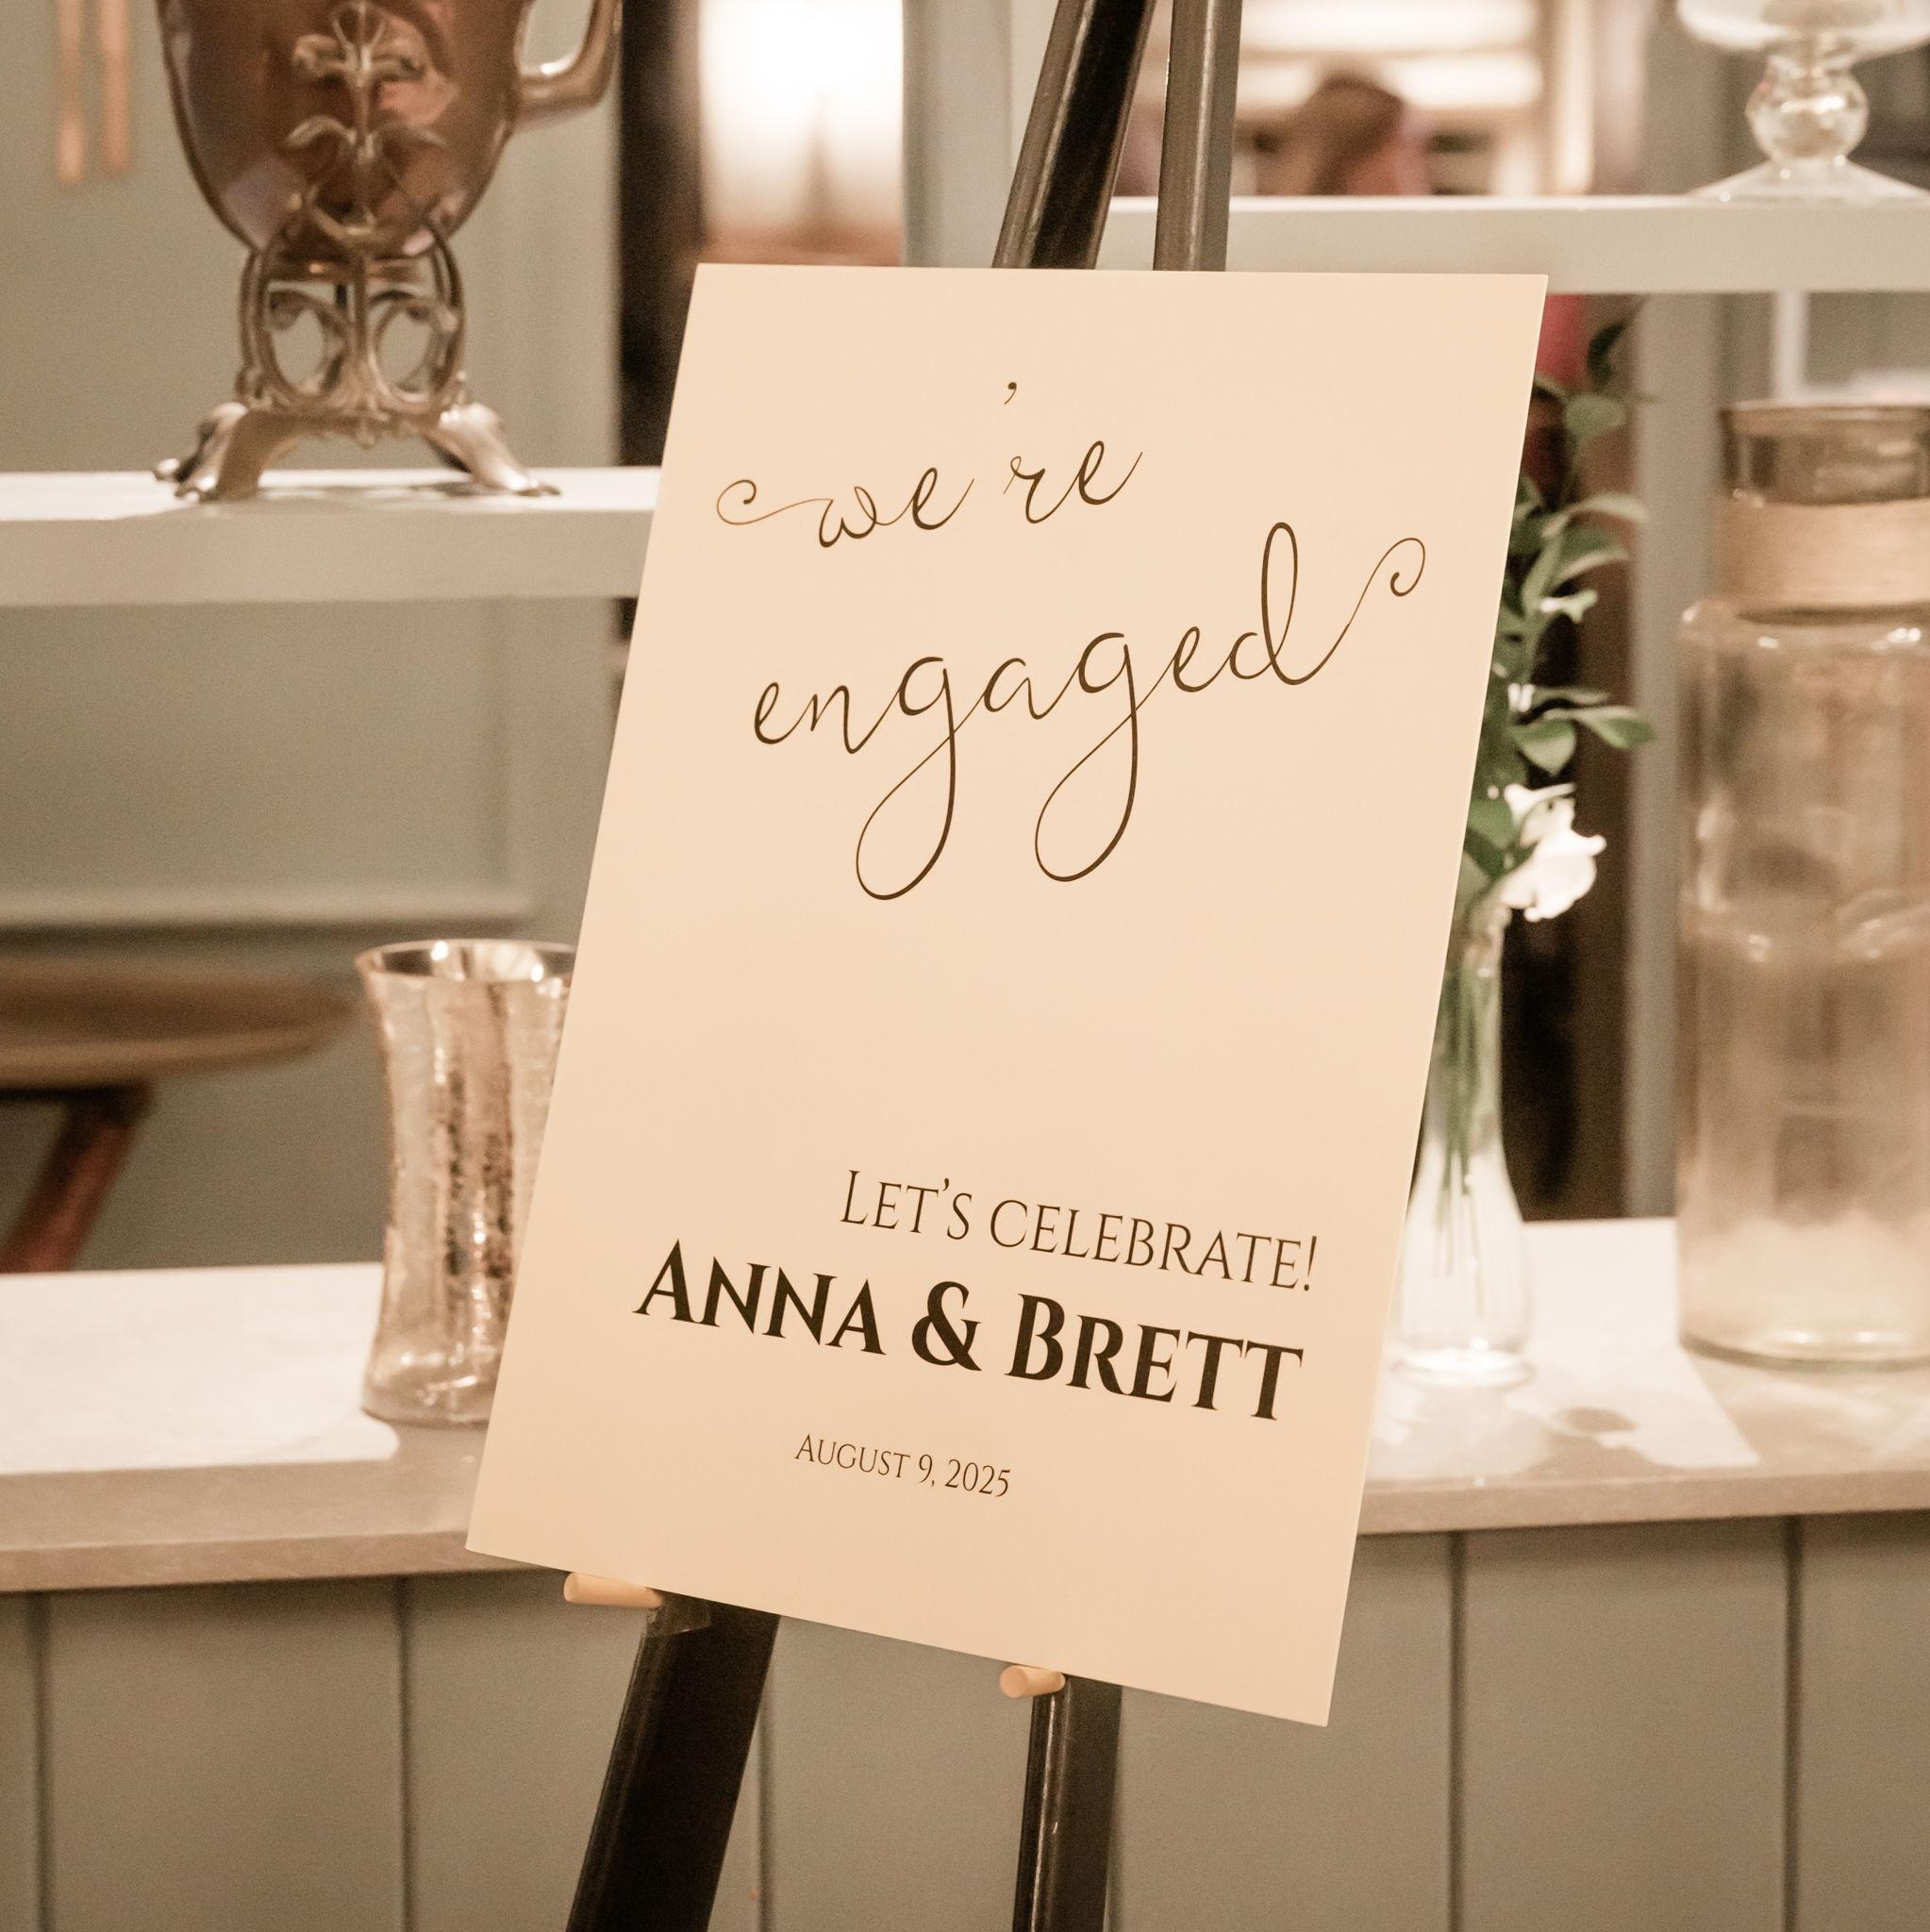 we're
engaged
LET'S CELEBRATE!
ANNA & BRETT
AUGUST 9, 2025